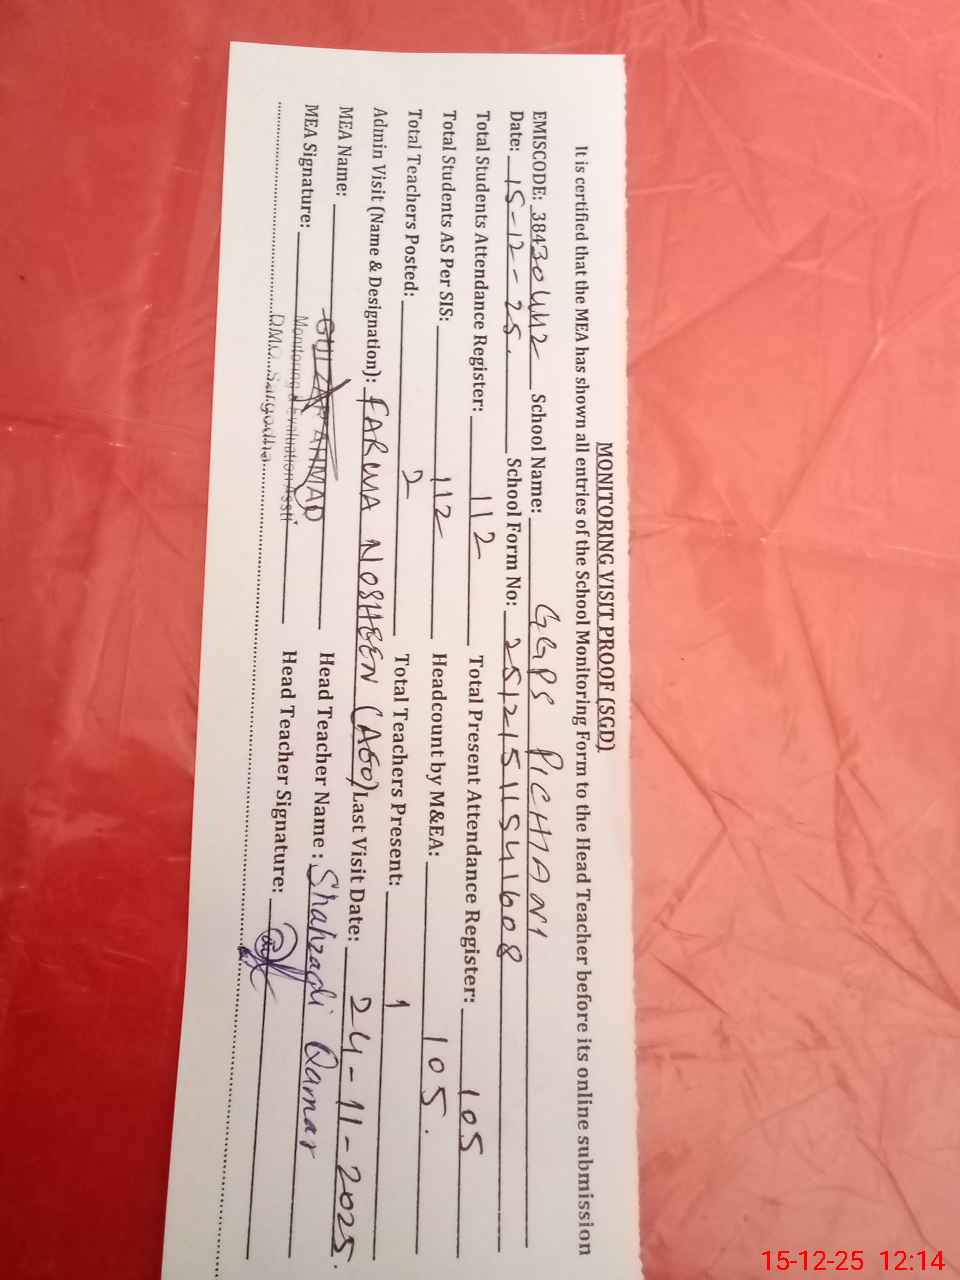 MONITORING VISIT PROOF (SGD)
It is certified that the MEA has shown all entries of the School Monitoring Form to the Head Teacher before its online submission
EMISCODE: 38430442 School Name: GGPS PICHIANI
Date: 15-12-25. School Form No: 25121511541608
Total Students Attendance Register: 112 Total Present Attendance Register: 105
Total Students AS Per SIS: 112 Headcount by M&EA: 105.
Total Teachers Posted: 2 Total Teachers Present: 1
Admin Visit (Name & Designation): FARWA NOSHEEN (AEO) Last Visit Date: 24-11-2025.
MEA Name: GULZAR AHMAD Head Teacher Name : Shahzadi Qamar
MEA Signature: Monitoring & Evaluation Asstt Head Teacher Signature:
DMO Sargodha
15-12-25 12:14